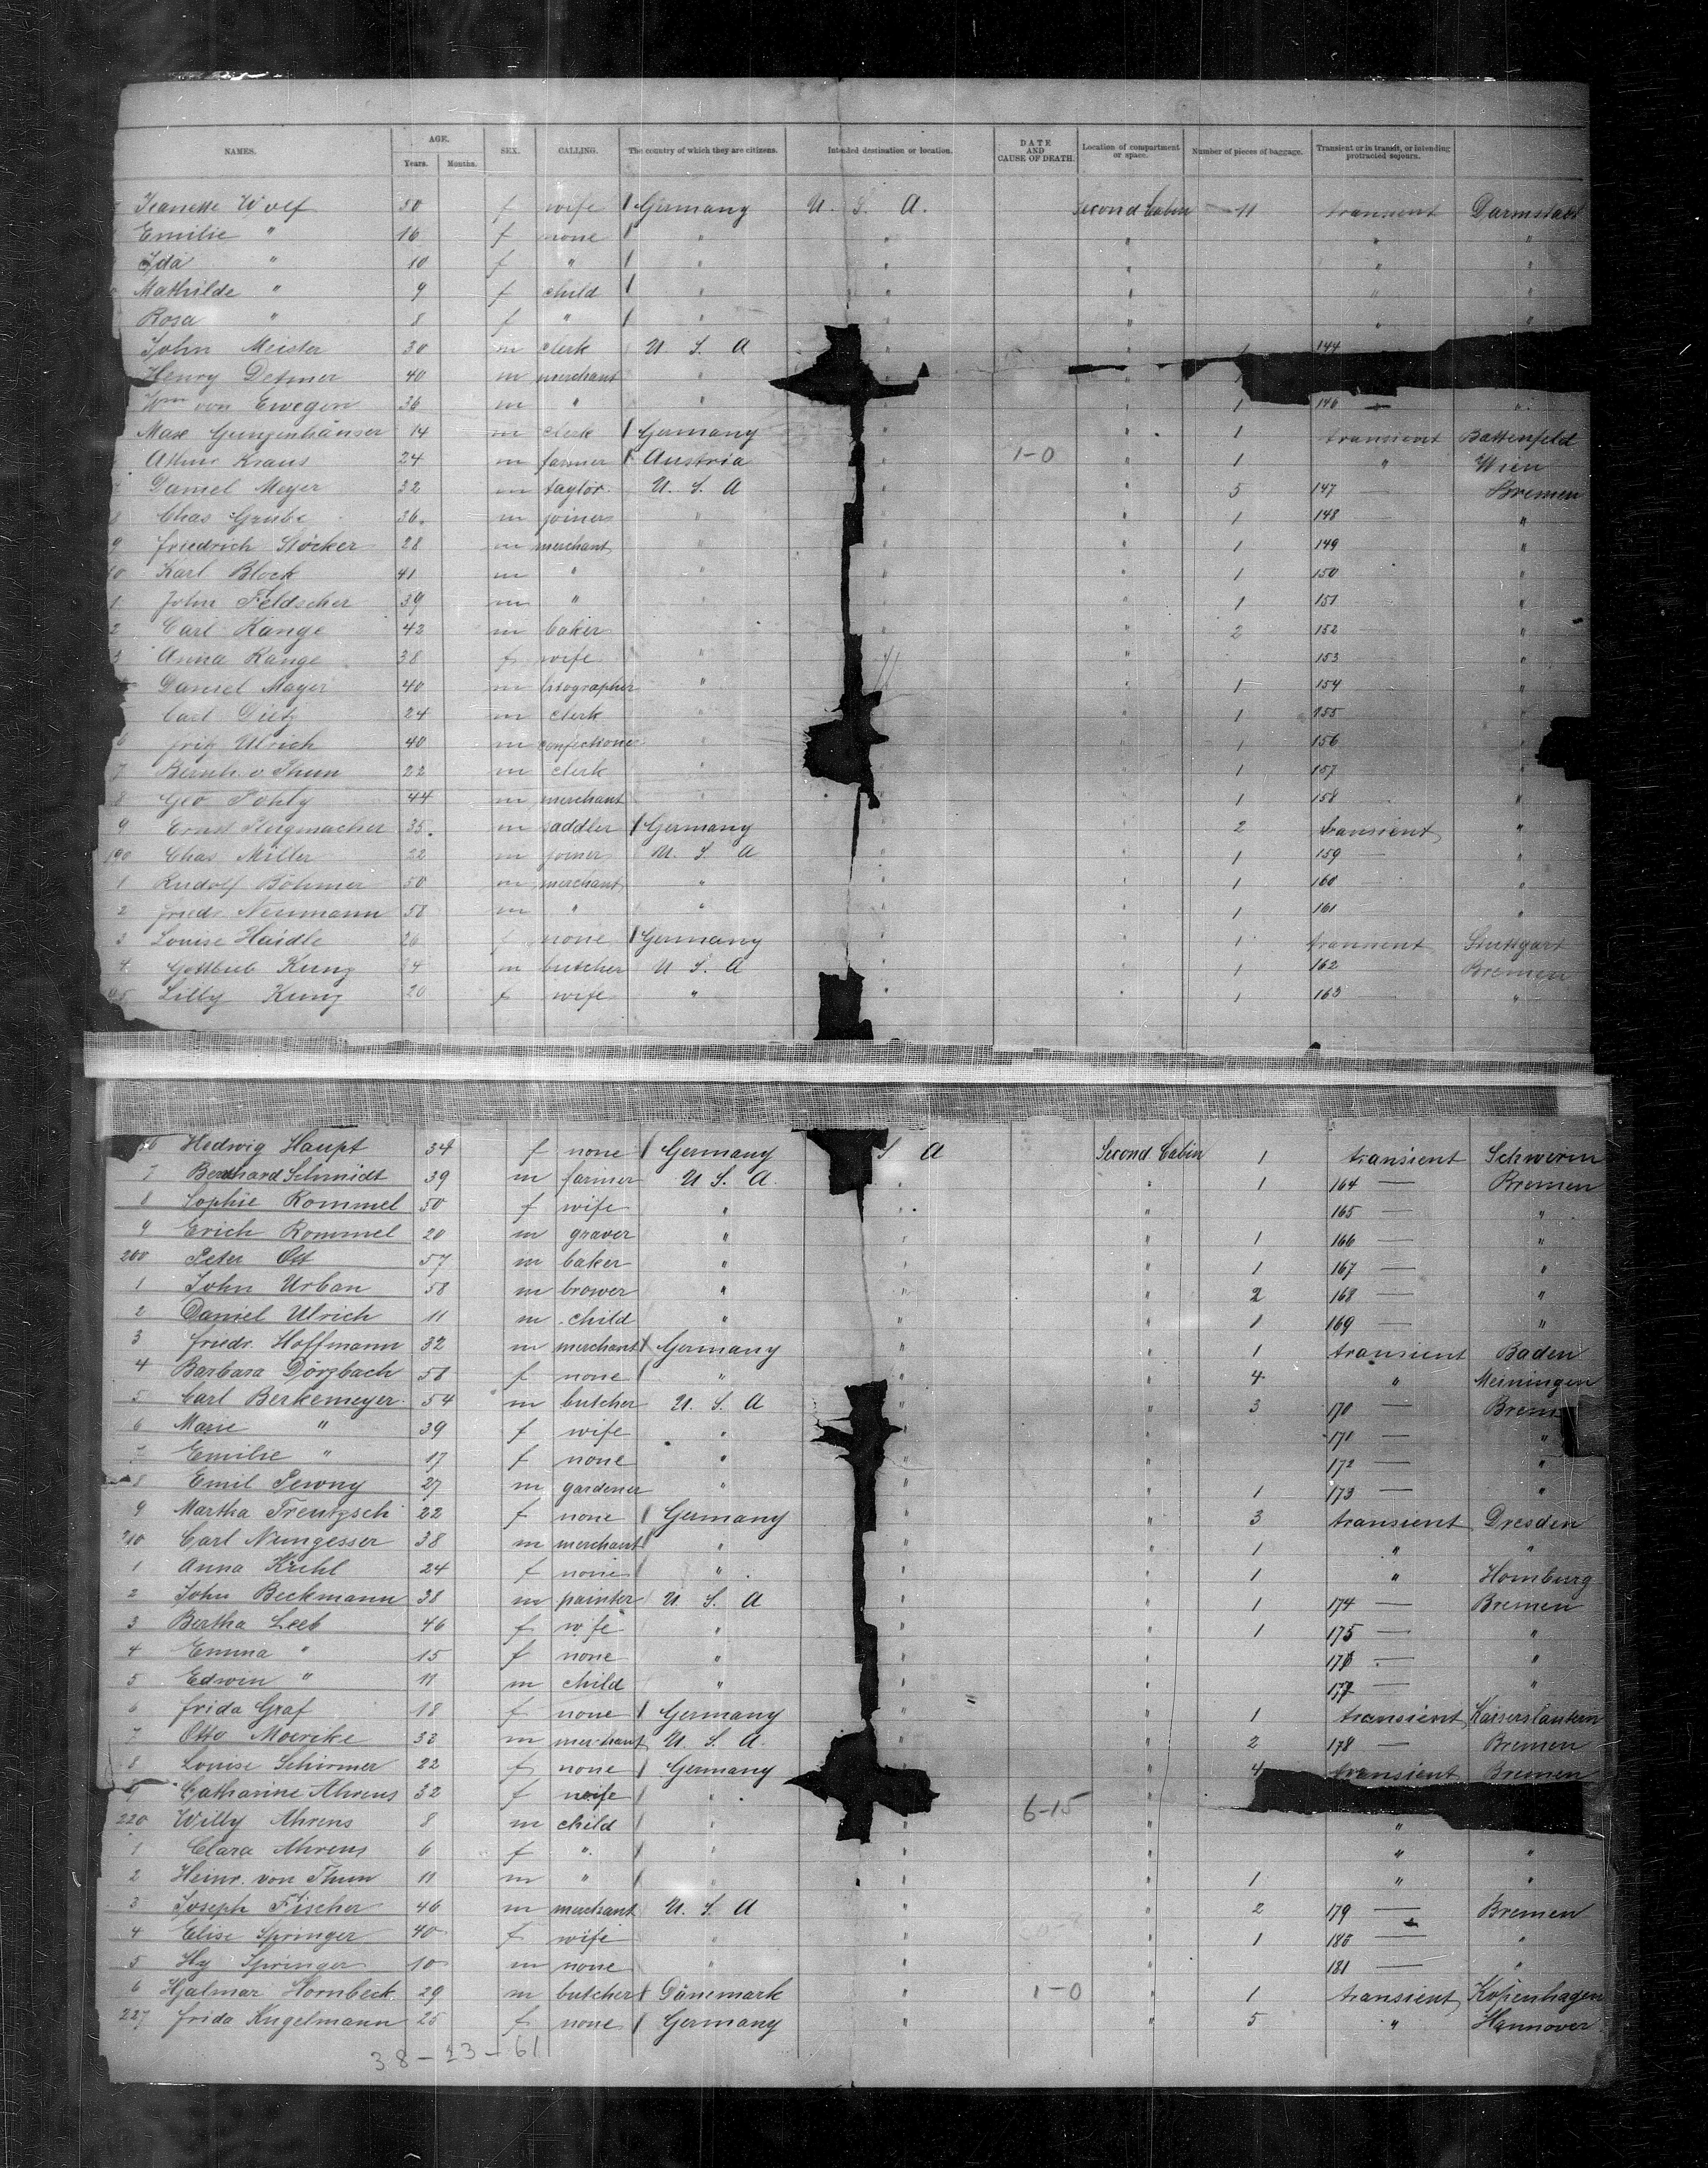 NAMES. AGE. Years. Months. SEX. CALLING. The country of which they are citizens. Intended destination or location. DATE AND CAUSE OF DEATH. Location of compartment or space. Number of pieces of baggage. Transient or in transit, or intending protracted sojourn.
Jeanette Wolf 50 f wife Germany U. S. A. Second Cabin 11 transient Darmstadt
Emilie " 16 f none " " " " "
Ida " 10 f " " " " " "
Mathilde " 9 f child " " " " "
Rosa " 8 f " " " " " "
John Meister 30 m clerk U. S. A " " 1 144
Henry Detmer 40 m merchant " " "
Wm von Ewegen 36 m " " " 1 146 — "
Max Gungenhäuser 14 m clerk Germany " 1 transient Battenfeld
Arthur Kraus 24 m farmer Austria 1-0 " 1 " Wien
Daniel Meyer 32 m taylor U. S. A " 5 147 — Bremen
8 Chas Grube 36 m joiner " " " 1 148 — "
9 Friedrich Stöcker 28 m merchant " " " 1 149 — "
10 Karl Block 41 m " " " " 1 150 — "
1 John Feldscher 39 m " " " " 1 151 — "
2 Carl Kange 43 m baker " " 2 152 — "
3 Anna Kange 38 f wife " " 153 "
Daniel Mayer 40 m litographer " " 1 154 — "
Carl Dietz 24 m clerk " " 1 155 — "
6 Fritz Ulrich 40 m confectioner " " 1 156
7 Bernh. v. Thun 22 m clerk " " 1 157 "
8 Geo Pohly 44 m merchant " " 1 158 "
9 Ernst Stegmacher 35 m saddler Germany " " 2 transient "
190 Chas Miller 22 m joiner U. S. A " " 1 159 — "
1 Rudolf Böhmer 50 m merchant " " " 1 160 — "
2 Friedr Neumann 58 m " " " " 1 161 — "
3 Louise Haidle 26 f none Germany " " 1 transient Stuttgart
4 Gottlieb Kunz 24 m butcher U. S. A " " 1 162 Bremen
95 Lilly Kunz 20 f wife " " " 1 163 — "
96 Hedwig Haupt 34 f none Germany S A Second Cabin 1 transient Schwerin
7 Bernhard Schmidt 39 m farmer U S. A. " " 1 164 — Bremen
8 Sophie Rommel 50 f wife " " " 165 — "
9 Erich Rommel 20 m graver " " " 1 166 — "
200 Peter Ott 57 m baker " " " 1 167 — "
1 John Urban 58 m brower " " " 2 168 — "
2 Daniel Ulrich 11 m child " " " 1 169 — "
3 Friedr. Hoffmann 32 m merchant Germany " " 1 transient Baden
4 Barbara Dörzbach 58 f none " " " 4 " Meiningen
5 Carl Berkemeyer 54 m butcher U. S. A " " 3 170 — Brem
6 Marie " 39 f wife " " " 171 — "
7 Emilie " 17 f none " " " 172 — "
8 Emil Pewny 27 m gardener " " " 1 173 — "
9 Martha Trentzsch 22 f none Germany " " 3 transient Dresden
210 Carl Nungesser 38 m merchant " " " 1 " "
1 Anna Krehl 24 f none " " " 1 " Homburg
2 John Beckmann 38 m painter U. S. A " " 1 174 — Bremen
3 Bertha Leeb 46 f wife " " " 1 175 — "
4 Emma " 15 f none " " " 176 — "
5 Edwin " 11 m child " " " 177 — "
6 Frida Graf 18 f none Germany " " 1 transient Kaiserslautern
7 Otto Moericke 33 m merchant U. S. A. " " 2 178 — Bremen
8 Louise Schirmer 22 f none Germany " " 4 transient Bremen
9 Catharine Ahrens 32 f wife " "
220 Willy Ahrens 8 m child " 6-15 " "
1 Clara Ahrens 6 f " " " " " "
2 Heinr. von Thun 11 m " " " " 1 " "
3 Joseph Fischer 46 m merchant U. S. A " " 2 179 — Bremen
4 Elise Springer 40 f wife " " " 1 180 — "
5 Hy Springer 10 m none " " " 181 — "
6 Hjalmar Hornbeck 29 m butcher Dänemark " 1-0 " 1 transient Kopenhagen
227 Frida Kugelmann 25 f none Germany " " 5 " Hannover
38-23-61